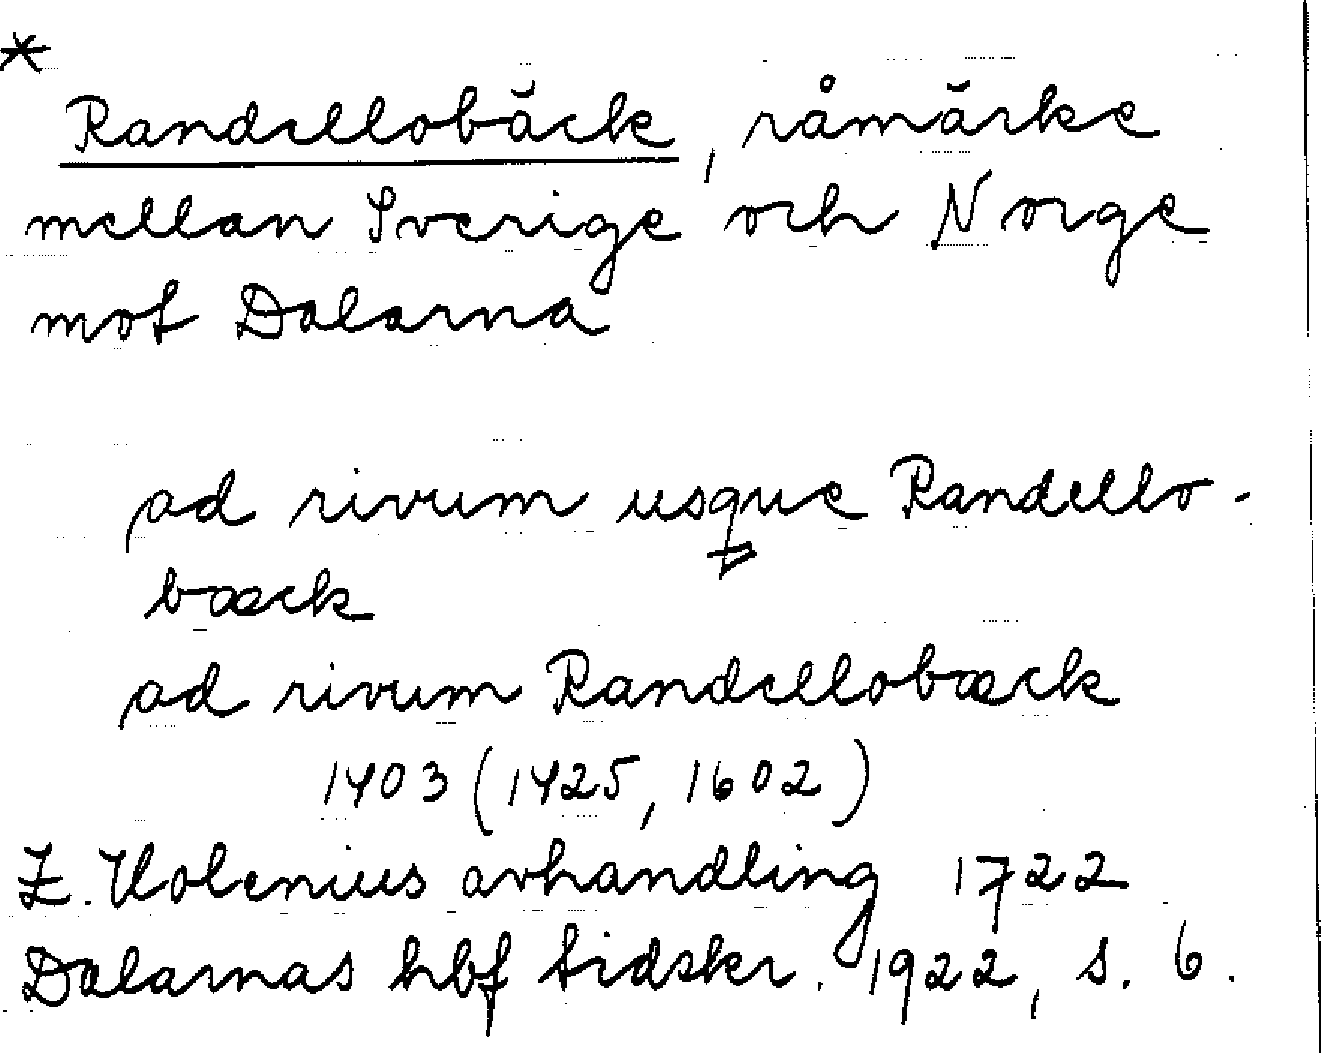 *
Randellobäck, råmärke
mellan Sverige och Norge
mot Dalarna
ad rivum usque Randello-
bæck
ad rivum Randellobæck
1403 (1425, 1602)
Z. Holenius avhandling 1722
Dalarnas hbf tidskr. 1922, s. 6.